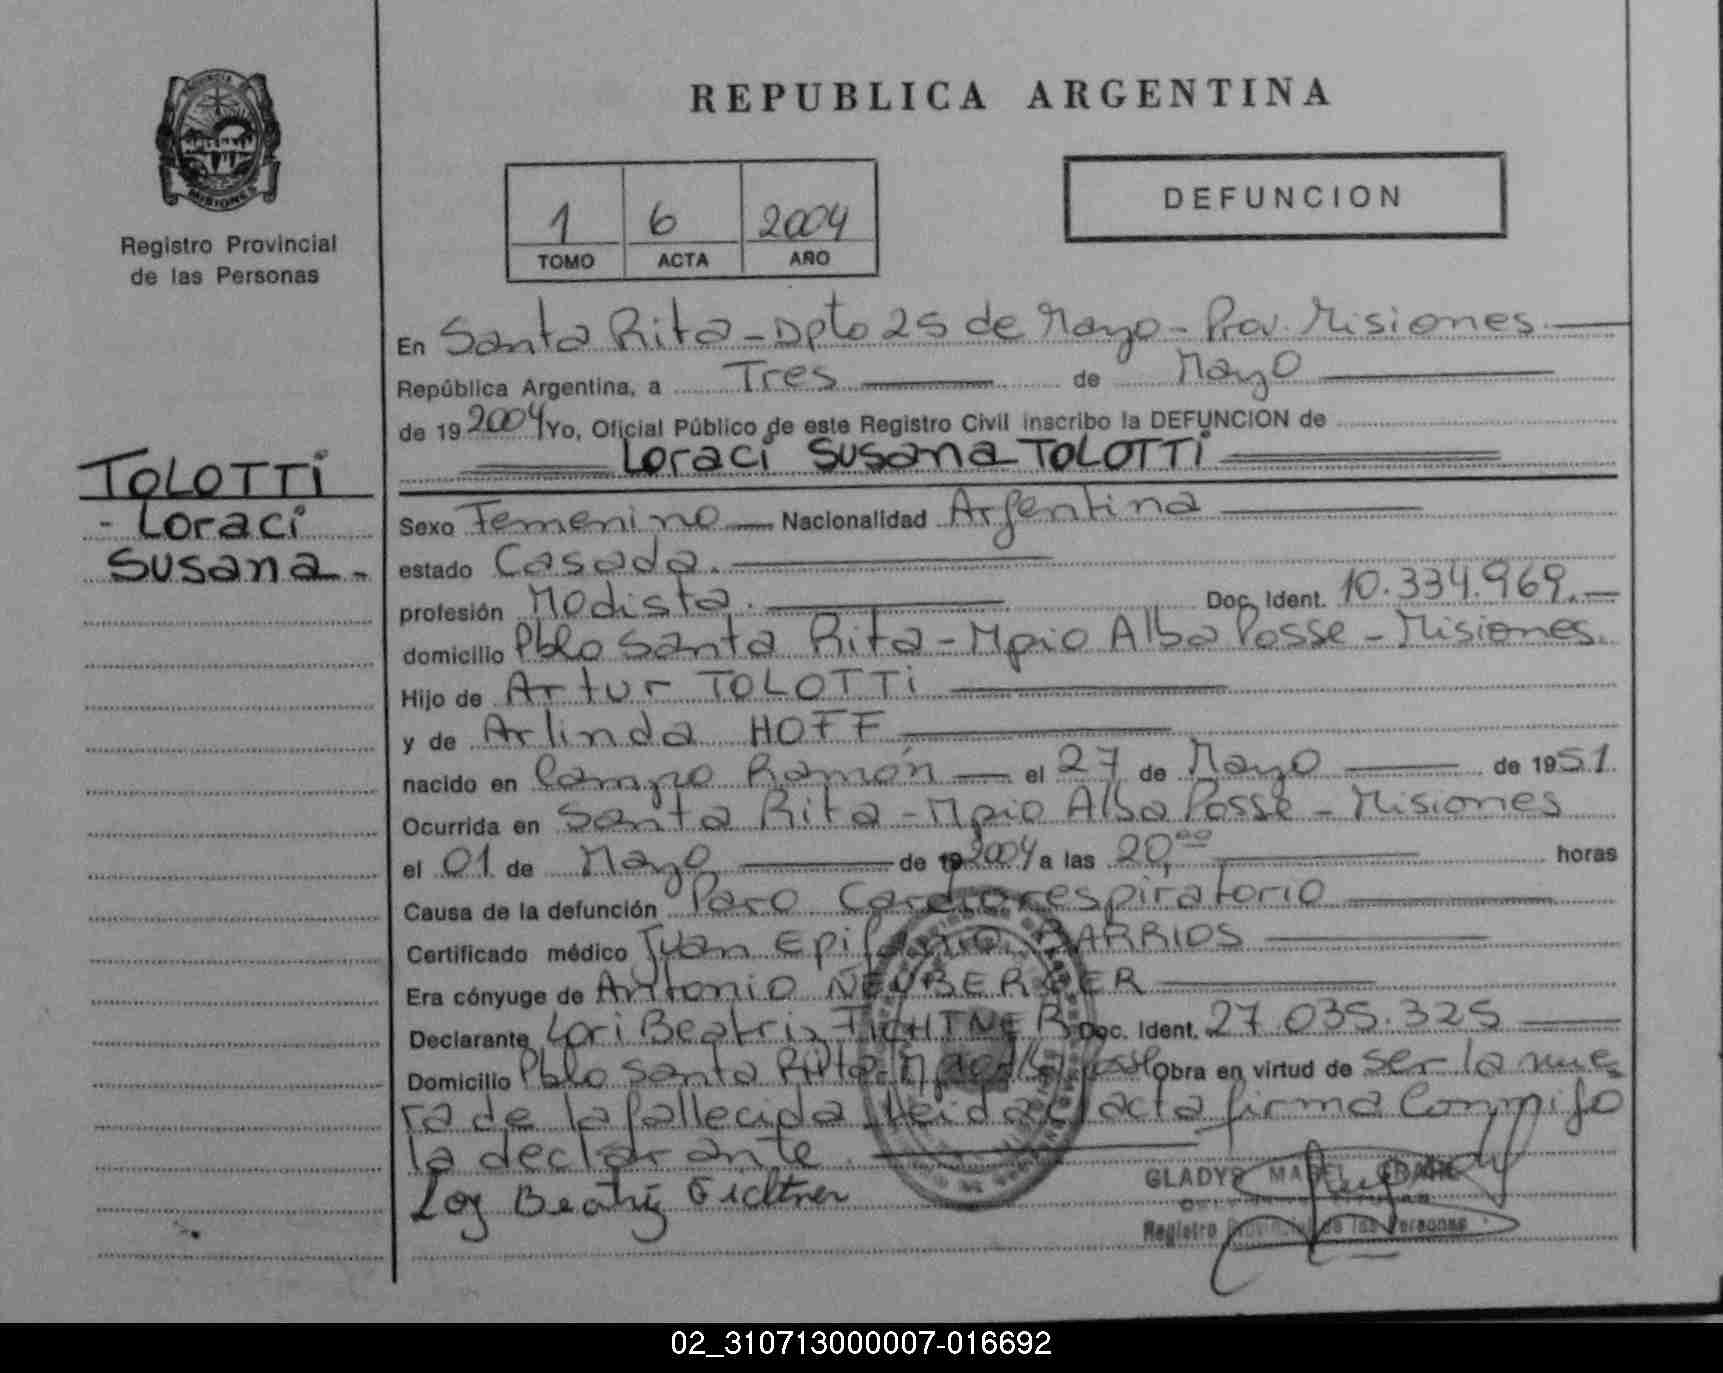 REPUBLICA ARGENTINA
PROVINCIA
MISIONES
Registro Provincial
de las Personas
1 6 2004
TOMO ACTA AÑO
DEFUNCION
En Santa Rita - Dpto 25 de Mayo - Prov. Misiones
República Argentina, a Tres de Mayo
de 19 2004 Yo, Oficial Público de este Registro Civil inscribo la DEFUNCION de
Loraci Susana TOLOTTi
TOLOTTi
- Loraci
Susana -
Sexo Femenino Nacionalidad Argentina
estado Casada.
profesión Modista. Doc. Ident. 10.334.969.
domicilio Pblo Santa Rita - Mpio Alba Posse - Misiones.
Hijo de Artur TOLOTTi
y de Arlinda HOFF
nacido en Campo Ramón el 27 de Mayo de 1951.
Ocurrida en Santa Rita - Mpio Alba Posse - Misiones
el 01 de Mayo de 19 2004 a las 20,00 horas
Causa de la defunción Paro Cardiorespiratorio
Certificado médico Juan Epifanio BARRIOS
Era cónyuge de Antonio NEUBERGER
Declarante Lori Beatriz FICHTNER Doc. Ident. 27.035.325
Domicilio Pblo Santa Rita - Mpio Alba Posse Obra en virtud de ser la nue
ra de la fallecida Leida el acta firma Conmigo
la declarante.
Beatriz Fichtner
GLADYS MABEL
Registro Provincial de las Personas
02_310713000007-016692